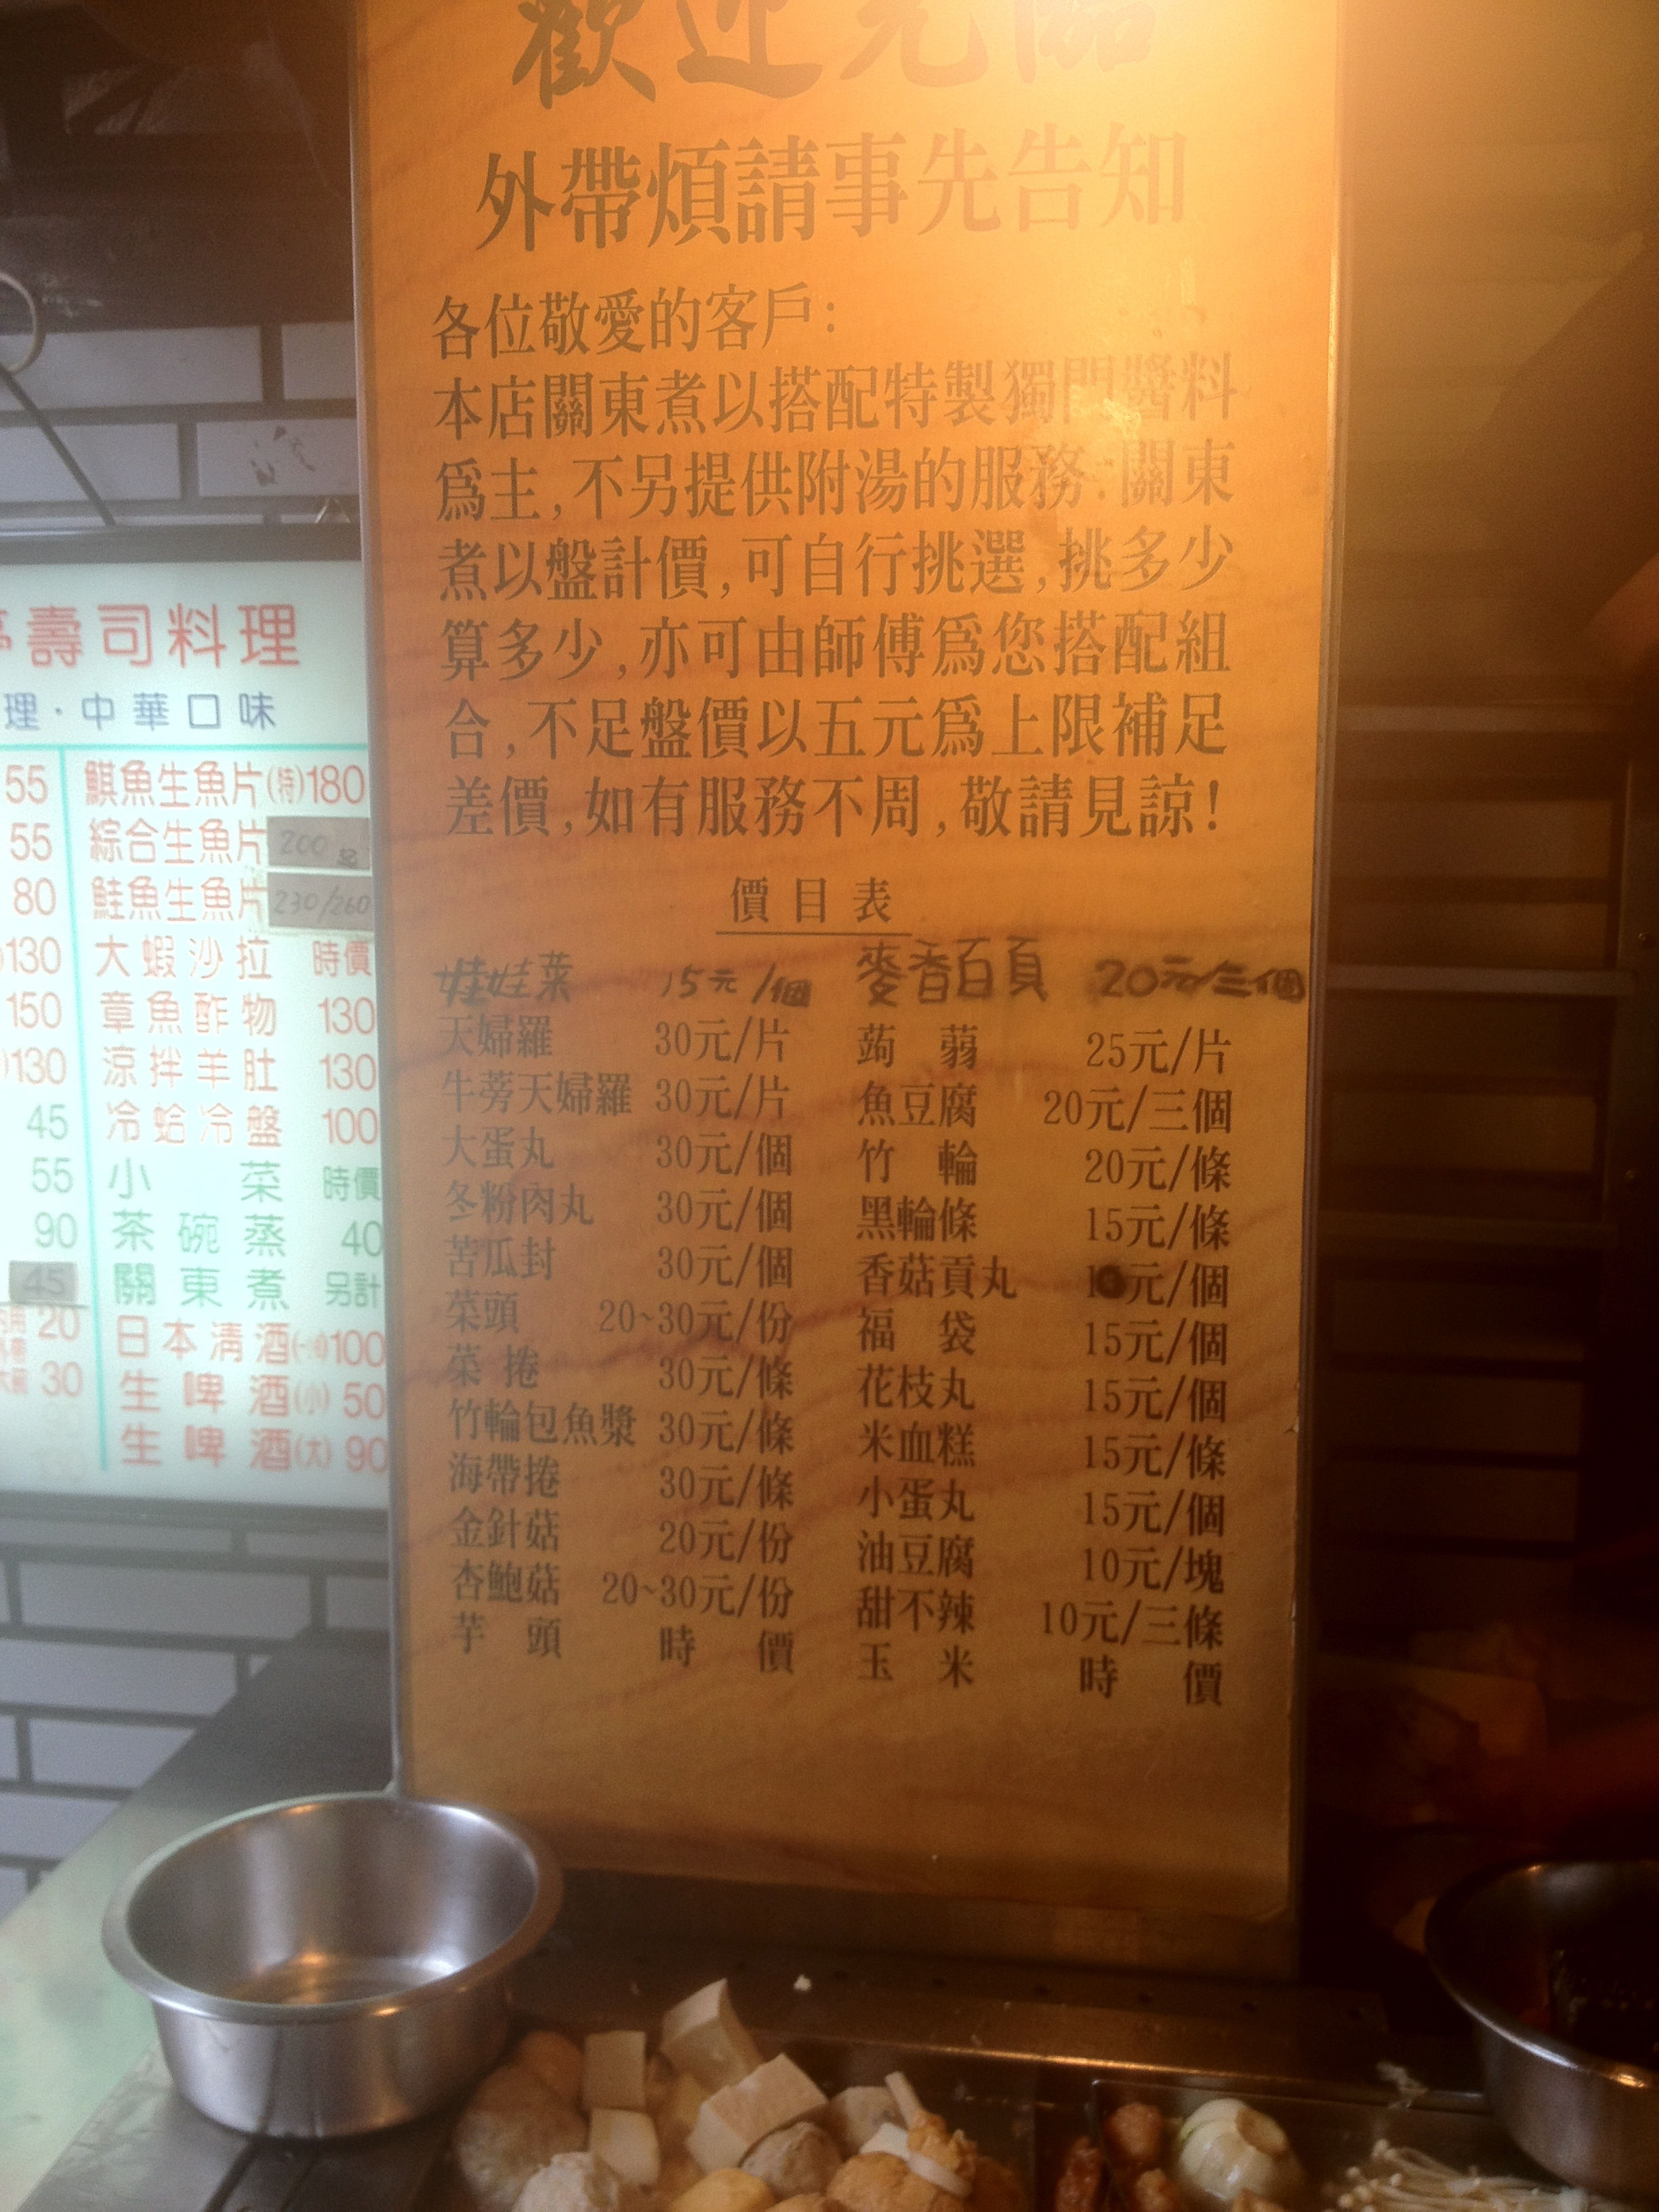 歡迎光臨
外帶煩請事先告知
各位敬愛的客戶：
本店關東煮以搭配特製獨門醬料
爲主，不另提供附湯的服務．關東
煮以盤計價，可自行挑選，挑多少
算多少，亦可由師傅爲您搭配組
合，不足盤價以五元爲上限補足
差價，如有服務不周，敬請見諒！
價目表
娃娃菜 15元/個 麥香百頁 20元/三個
天婦羅 30元/片 蒟蒻 25元/片
牛蒡天婦羅 30元/片 魚豆腐 20元/三個
大蛋丸 30元/個 竹輪 20元/條
冬粉肉丸 30元/個 黑輪條 15元/條
苦瓜封 30元/個 香菇貢丸 元/個
菜頭 20~30元/份 福袋 15元/個
菜捲 30元/條 花枝丸 15元/個
竹輪包魚漿 30元/條 米血糕 15元/條
海帶捲 30元/條 小蛋丸 15元/個
金針菇 20元/份 油豆腐 10元/塊
杏鮑菇 20~30元/份 甜不辣 10元/三條
芋頭 時價 玉米 時價
壽司料理
理·中華口味
55 鯕魚生魚片(特)180
55 綜合生魚片 200起
80 鮭魚生魚片 230/260
130 大蝦沙拉 時價
150 章魚酢物 130
130 涼拌羊肚 130
45 冷蛤冷盤 100
55 小菜 時價
90 茶碗蒸 40
45 關東煮 另計
20 日本清酒 100
30 生啤酒(小) 50
生啤酒(大) 90